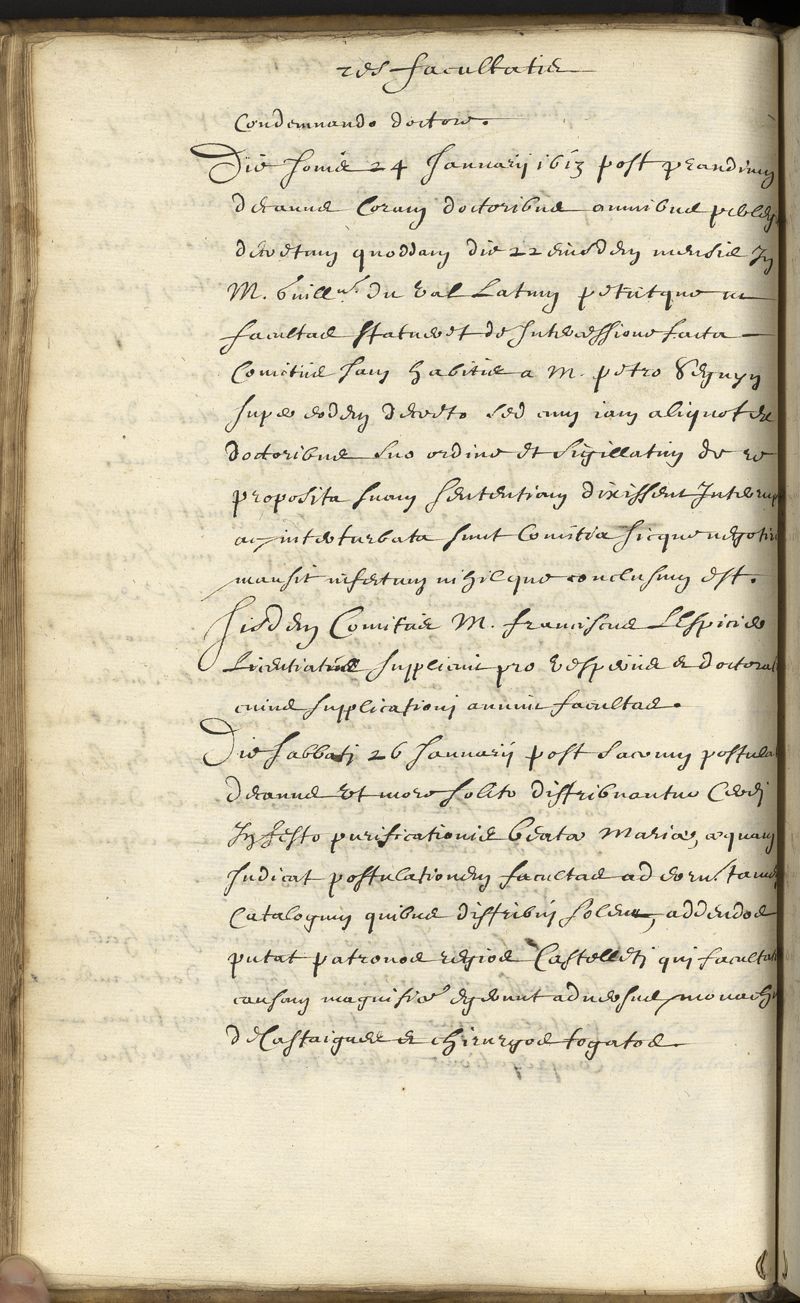 res facultatis
Condemnando doctore.
Die Jovis 24 Januarii 1613 post prandium
decanus Coram doctoribus omnibus
decretum quoddam die 22 eiusdem mensis In
M. Guill.um du Val Latum petiitque ut
facultas statueret de Intercessione facta
Comitiis Jam habitis a M. petro Seguyn
super eodem decreto sed cum iam aliquot ex
doctoribus suo ordine et sigillatim de re
proposita suam sententiam dixissent
ac interturbata sunt Comitia sicque
mansit infectum nihilque conclusum est.
Iisdem Comitiis M. franciscus Lespicier
Licentiatus supplicuit pro vesperiis et
cuius supplicationi annuit facultas.
Die Sabbati 26 Januarii post sacrum
decanus Ut more solito distribuantur Cerei
In festo purificationis beatae Mariae, aequam
Judicat postulationem facultas ad eorum tamen
Catalogum quibus distribui solent, addendos
putat patronos regios Castelleti qui
causam magnifice egerunt adversus
de Castaignes et chirurgos togatos.